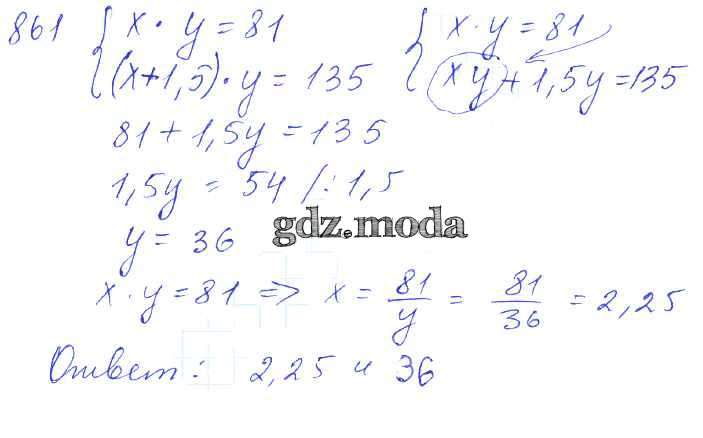 861 { x · y = 81
(x+1,5) · y = 135
{ x · y = 81
xy + 1,5y = 135
81 + 1,5y = 135
1,5y = 54 /: 1,5
y = 36
gdz.moda
x · y = 81 => x = 81/y = 81/36 = 2,25
Ответ: 2,25 и 36